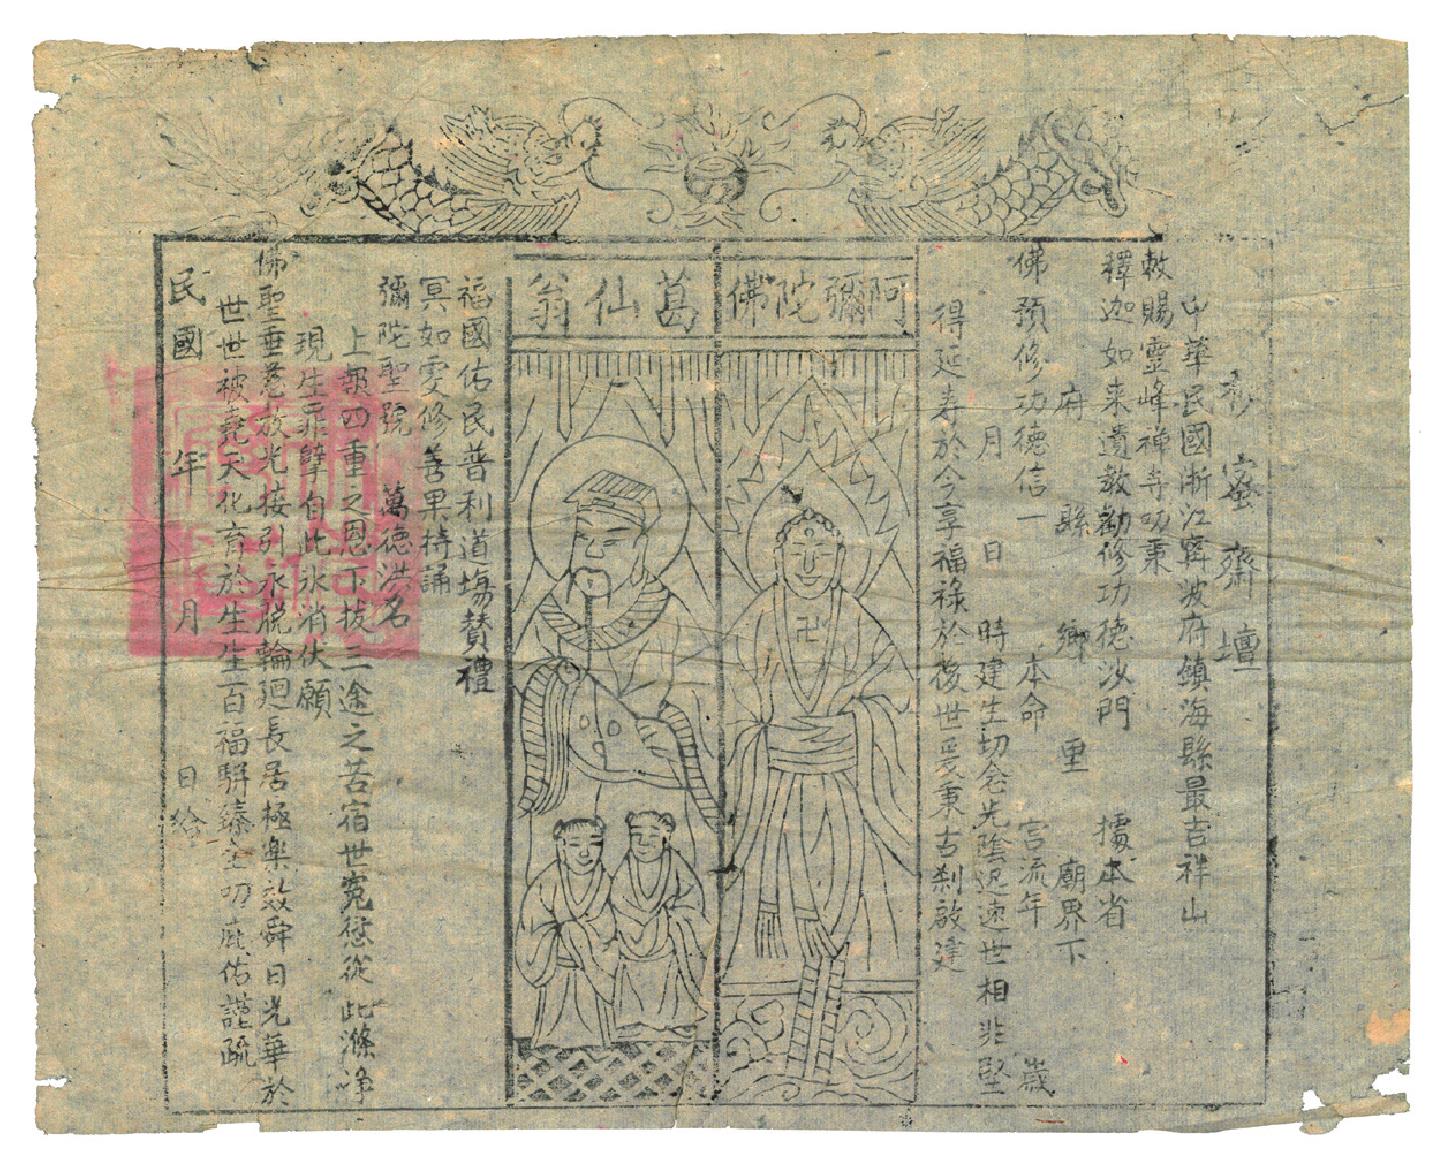 秘 蜜 齋 壇
中華民國浙江寕波府鎮海縣最吉祥山
敕賜靈峰禅寺叨秉
釋迦如来遺教勸修功德沙門 據本省
府 縣 鄉 里 廟界下
佛預修功德信一 本命 宮流年 歲
月 日 時建生切念光陰迅速世相非堅
得延寿於今享福祿於後世爰秉古刹啟建
阿彌陀佛
葛仙翁
福國佑民普利道塲賛禮
冥如雯修善果持誦
彌陀聖號 萬德洪名
上報四重之恩下拔三途之苦宿世寃愆從此滌淨
現生罪孽自此氷消伏願
佛聖垂慈放光接引永脫輪廻長居極樂效舜日光華於
世世被堯天化育於生生百福駢臻全叨庇佑謹疏
民國 年 月 日給